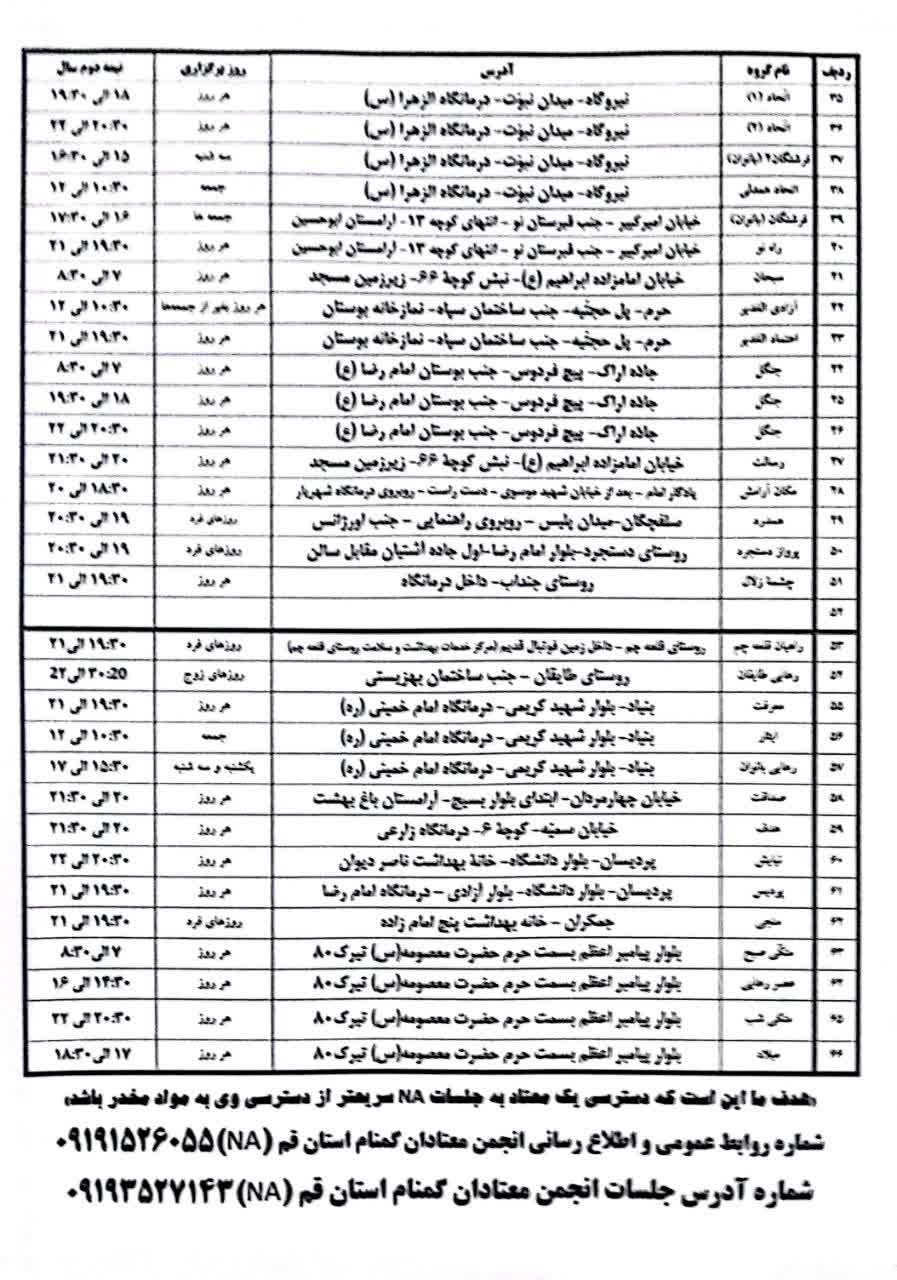 ردیف نام گروه آدرس روز برگزاری نیمه دوم سال
۳۵ اتحاد (۱) نیروگاه- میدان نبوّت- درمانگاه الزهرا (س) هر روز ۱۸ الی ۱۹:۳۰
۳۶ اتحاد (۲) نیروگاه- میدان نبوّت- درمانگاه الزهرا (س) هر روز ۲۰:۳۰ الی ۲۲
۳۷ فرشتگان۲ (بانوان) نیروگاه- میدان نبوّت- درمانگاه الزهرا (س) سه شنبه ۱۵ الی ۱۶:۳۰
۳۸ اتحاد همدلی نیروگاه- میدان نبوّت- درمانگاه الزهرا (س) جمعه ۱۰:۳۰ الی ۱۲
۳۹ فرشتگان (بانوان) خیابان امیرکبیر - جنب قبرستان نو - انتهای کوچه ۱۳- آرامستان ابوحسین جمعه ها ۱۶ الی ۱۷:۳۰
۴۰ راه نو خیابان امیرکبیر - جنب قبرستان نو - انتهای کوچه ۱۳- آرامستان ابوحسین هر روز ۱۹:۳۰ الی ۲۱
۴۱ سبحان خیابان امامزاده ابراهیم (ع)- نبش کوچهٔ ۶۶- زیرزمین مسجد هر روز ۷ الی ۸:۳۰
۴۲ آزادی الغدیر حرم- پل حجتیه- جنب ساختمان سپاه- نمازخانه بوستان هر روز بغیر از جمعه‌ها ۱۰:۳۰ الی ۱۲
۴۳ اعتماد الغدیر حرم- پل حجتیه- جنب ساختمان سپاه- نمازخانه بوستان هر روز ۱۹:۳۰ الی ۲۱
۴۴ جنگل جاده اراک- پیچ فردوس- جنب بوستان امام رضا (ع) هر روز ۷ الی ۸:۳۰
۴۵ جنگل جاده اراک- پیچ فردوس- جنب بوستان امام رضا (ع) هر روز ۱۸ الی ۱۹:۳۰
۴۶ جنگل جاده اراک- پیچ فردوس- جنب بوستان امام رضا (ع) هر روز ۲۰:۳۰ الی ۲۲
۴۷ رسالت خیابان امامزاده ابراهیم (ع)- نبش کوچهٔ ۶۶- زیرزمین مسجد هر روز ۲۰ الی ۲۱:۳۰
۴۸ مکان آرامش یادگار امام - بعد از خیابان شهید موسوی - دست راست - روبروی درمانگاه شهریار هر روز ۱۸:۳۰ الی ۲۰
۴۹ سلفچگان-میدان پلیس - روبروی راهنمایی - جنب اورژانس روزهای فرد ۱۹ الی ۲۰:۳۰
۵۰ پرواز دستجرد روستای دستجرد-بلوار امام رضا-اول جاده آشتیان مقابل سالن روزهای فرد ۱۹ الی ۲۰:۳۰
۵۱ چشمهٔ زلال روستای جنداب- داخل درمانگاه هر روز ۱۹:۳۰ الی ۲۱
۵۲
۵۳ راهیان قلعه چم روستای قلعه چم - داخل زمین فوتبال قدیم (مرکز خدمات بهداشت و سلامت روستای قلعه چم) روزهای فرد ۱۹:۳۰ الی۲۱
۵۴ رهایی طایقان روستای طایقان - جنب ساختمان بهزیستی روزهای زوج 30:20 الی22
۵۵ معرفت بنیاد- بلوار شهید کریمی- درمانگاه امام خمینی (ره) هر روز ۱۹:۳۰ الی ۲۱
۵۶ ایثار بنیاد- بلوار شهید کریمی- درمانگاه امام خمینی (ره) جمعه ۱۰:۳۰ الی ۱۲
۵۷ رهایی بانوان بنیاد- بلوار شهید کریمی- درمانگاه امام خمینی (ره) یکشنبه و سه شنبه ۱۵:۳۰ الی ۱۷
۵۸ صداقت خیابان چهارمردان- ابتدای بلوار بسیج- آرامستان باغ بهشت هر روز ۲۰ الی ۲۱:۳۰
۵۹ هدف خیابان سمیّه- کوچهٔ ۶- درمانگاه زارعی هر روز ۲۰ الی ۲۱:۳۰
۶۰ نیایش پردیسان- بلوار دانشگاه- خانهٔ بهداشت ناصر دیوان هر روز ۲۰:۳۰ الی ۲۲
۶۱ پردیس پردیسان- بلوار دانشگاه- بلوار آزادی - درمانگاه امام رضا هر روز ۱۹:۳۰ الی ۲۱
۶۲ منجی جمکران - خانه بهداشت پنج امام زاده روزهای فرد ۱۹:۳۰ الی ۲۱
۶۳ ملکی صبح بلوار پیامبر اعظم بسمت حرم حضرت معصومه(س) تیرک۸۰ هر روز ۷ الی۸:۳۰
۶۴ عصر رهایی بلوار پیامبر اعظم بسمت حرم حضرت معصومه(س) تیرک۸۰ هر روز ۱۴:۳۰ الی ۱۶
۶۵ ملکی شب بلوار پیامبر اعظم بسمت حرم حضرت معصومه(س) تیرک۸۰ هر روز ۲۰:۳۰ الی ۲۲
۶۶ میلاد بلوار پیامبر اعظم بسمت حرم حضرت معصومه(س) تیرک۸۰ هر روز ۱۷ الی ۱۸:۳۰
(هدف ما این است که دسترسی یک معتاد به جلسات NA سریعتر از دسترسی وی به مواد مخدر باشد)
شماره روابط عمومی و اطلاع رسانی انجمن معتادان گمنام استان قم (NA)۰۹۱۹۱۵۲۶۰۵۵
شماره آدرس جلسات انجمن معتادان گمنام استان قم (NA)۰۹۱۹۳۵۲۷۱۴۳